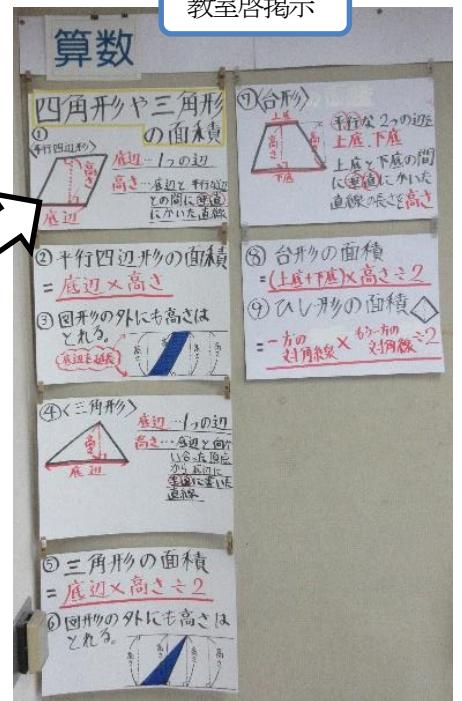 教室啓掲示
算数
四角形や三角形
の面積
①
〈平行四辺形〉
高さ
底辺
底辺…1つの辺
高さ…底辺と平行な辺
との間に垂直
にかいた直線
②平行四辺形の面積
=底辺×高さ
③図形の外にも高さは
とれる。
底辺を延長
高さ
④〈三角形〉
高さ
底辺
底辺…1つの辺
高さ…底辺と向か
い合った頂点
から底辺に
垂直に書いた
直線
⑤三角形の面積
=底辺×高さ÷2
⑥図形の外にも高さは
とれる。
高さ
高さ
高さ
⑦〈台形〉
上底
高さ
高さ
下底
平行な2つの辺を
上底、下底
上底と下底の間
に垂直にかいた
直線の長さを高さ
⑧台形の面積
=(上底+下底)×高さ÷2
⑨ひし形の面積
=一方の対角線×もう一方の対角線÷2